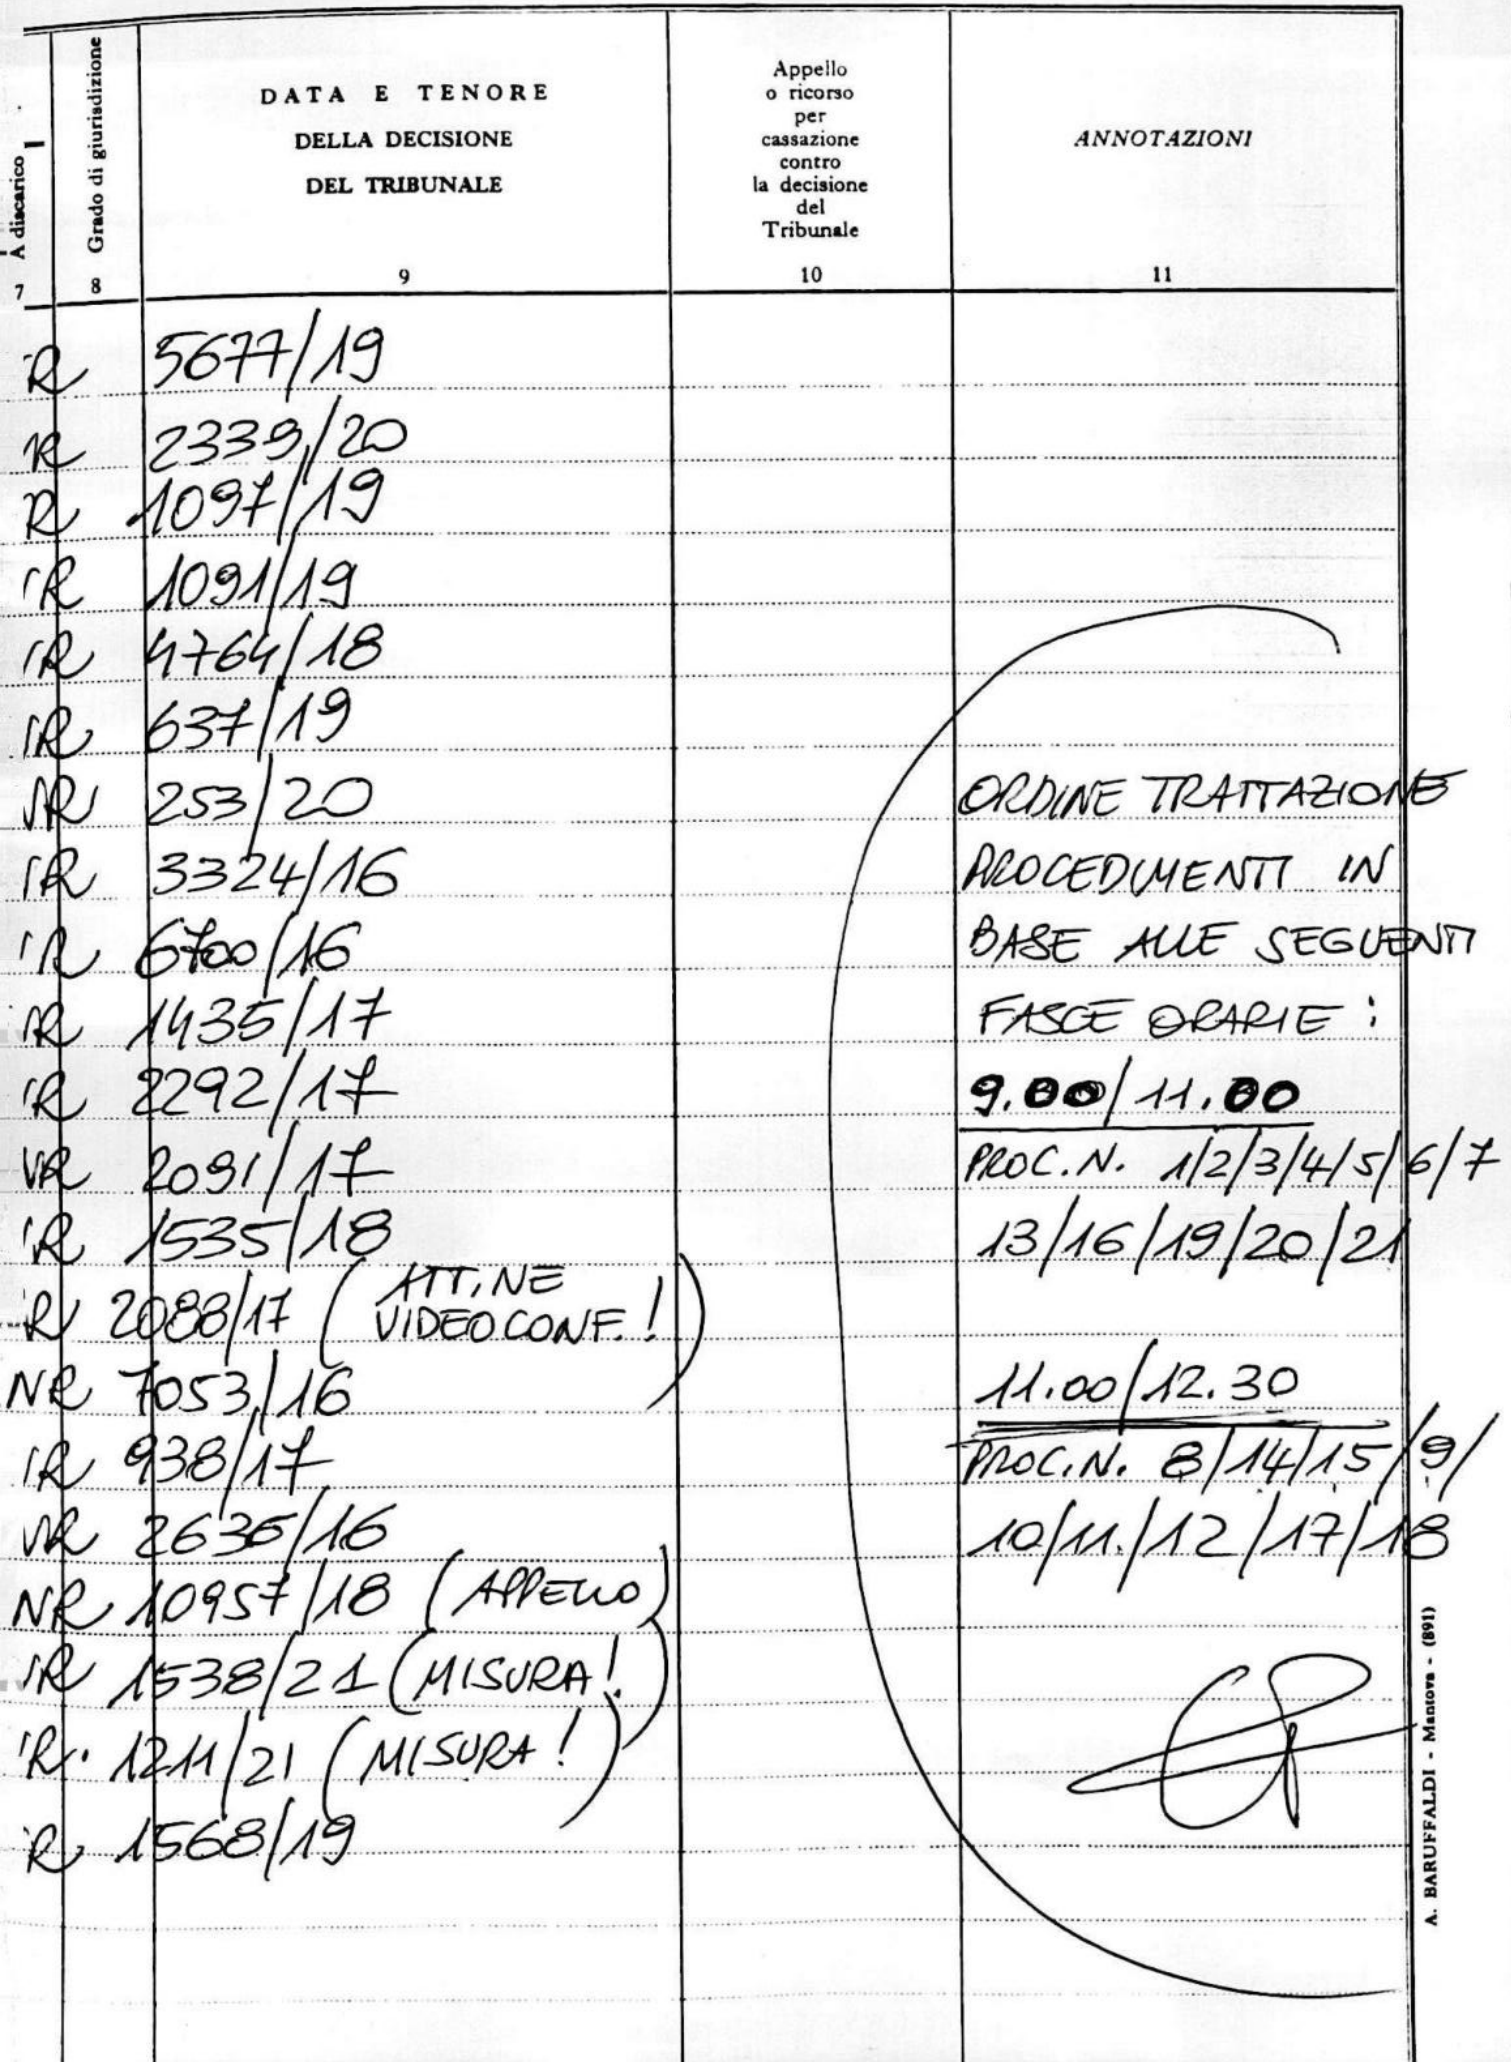 A discarico
7
Grado di giurisdizione
8
DATA E TENORE
DELLA DECISIONE
DEL TRIBUNALE
9
Appello
o ricorso
per
cassazione
contro
la decisione
del
Tribunale
10
ANNOTAZIONI
11
R 5677/19
R 2339/20
R 1097/19
R 1091/19
R 4764/18
R 637/19
R 253/20
R 3324/16
R 6700/16
R 1435/17
R 2292/17
R 2091/17
R 1535/18
R 2088/17 (ATT.NE
VIDEOCONF.!)
NR 7053/16
R 938/17
R 2635/16
NR 10957/18 (APPELLO)
R 1538/21 (MISURA!)
R. 1211/21 (MISURA!)
R 1568/19
ORDINE TRATTAZIONE
PROCEDIMENTI IN
BASE ALLE SEGUENTI
FASCE ORARIE:
9.00/11.00
PROC.N. 1/2/3/4/5/6/7
13/16/19/20/21
11.00/12.30
PROC.N. 8/14/15/9/
10/11./12/17/18
A. BARUFFALDI - Mantova - (891)